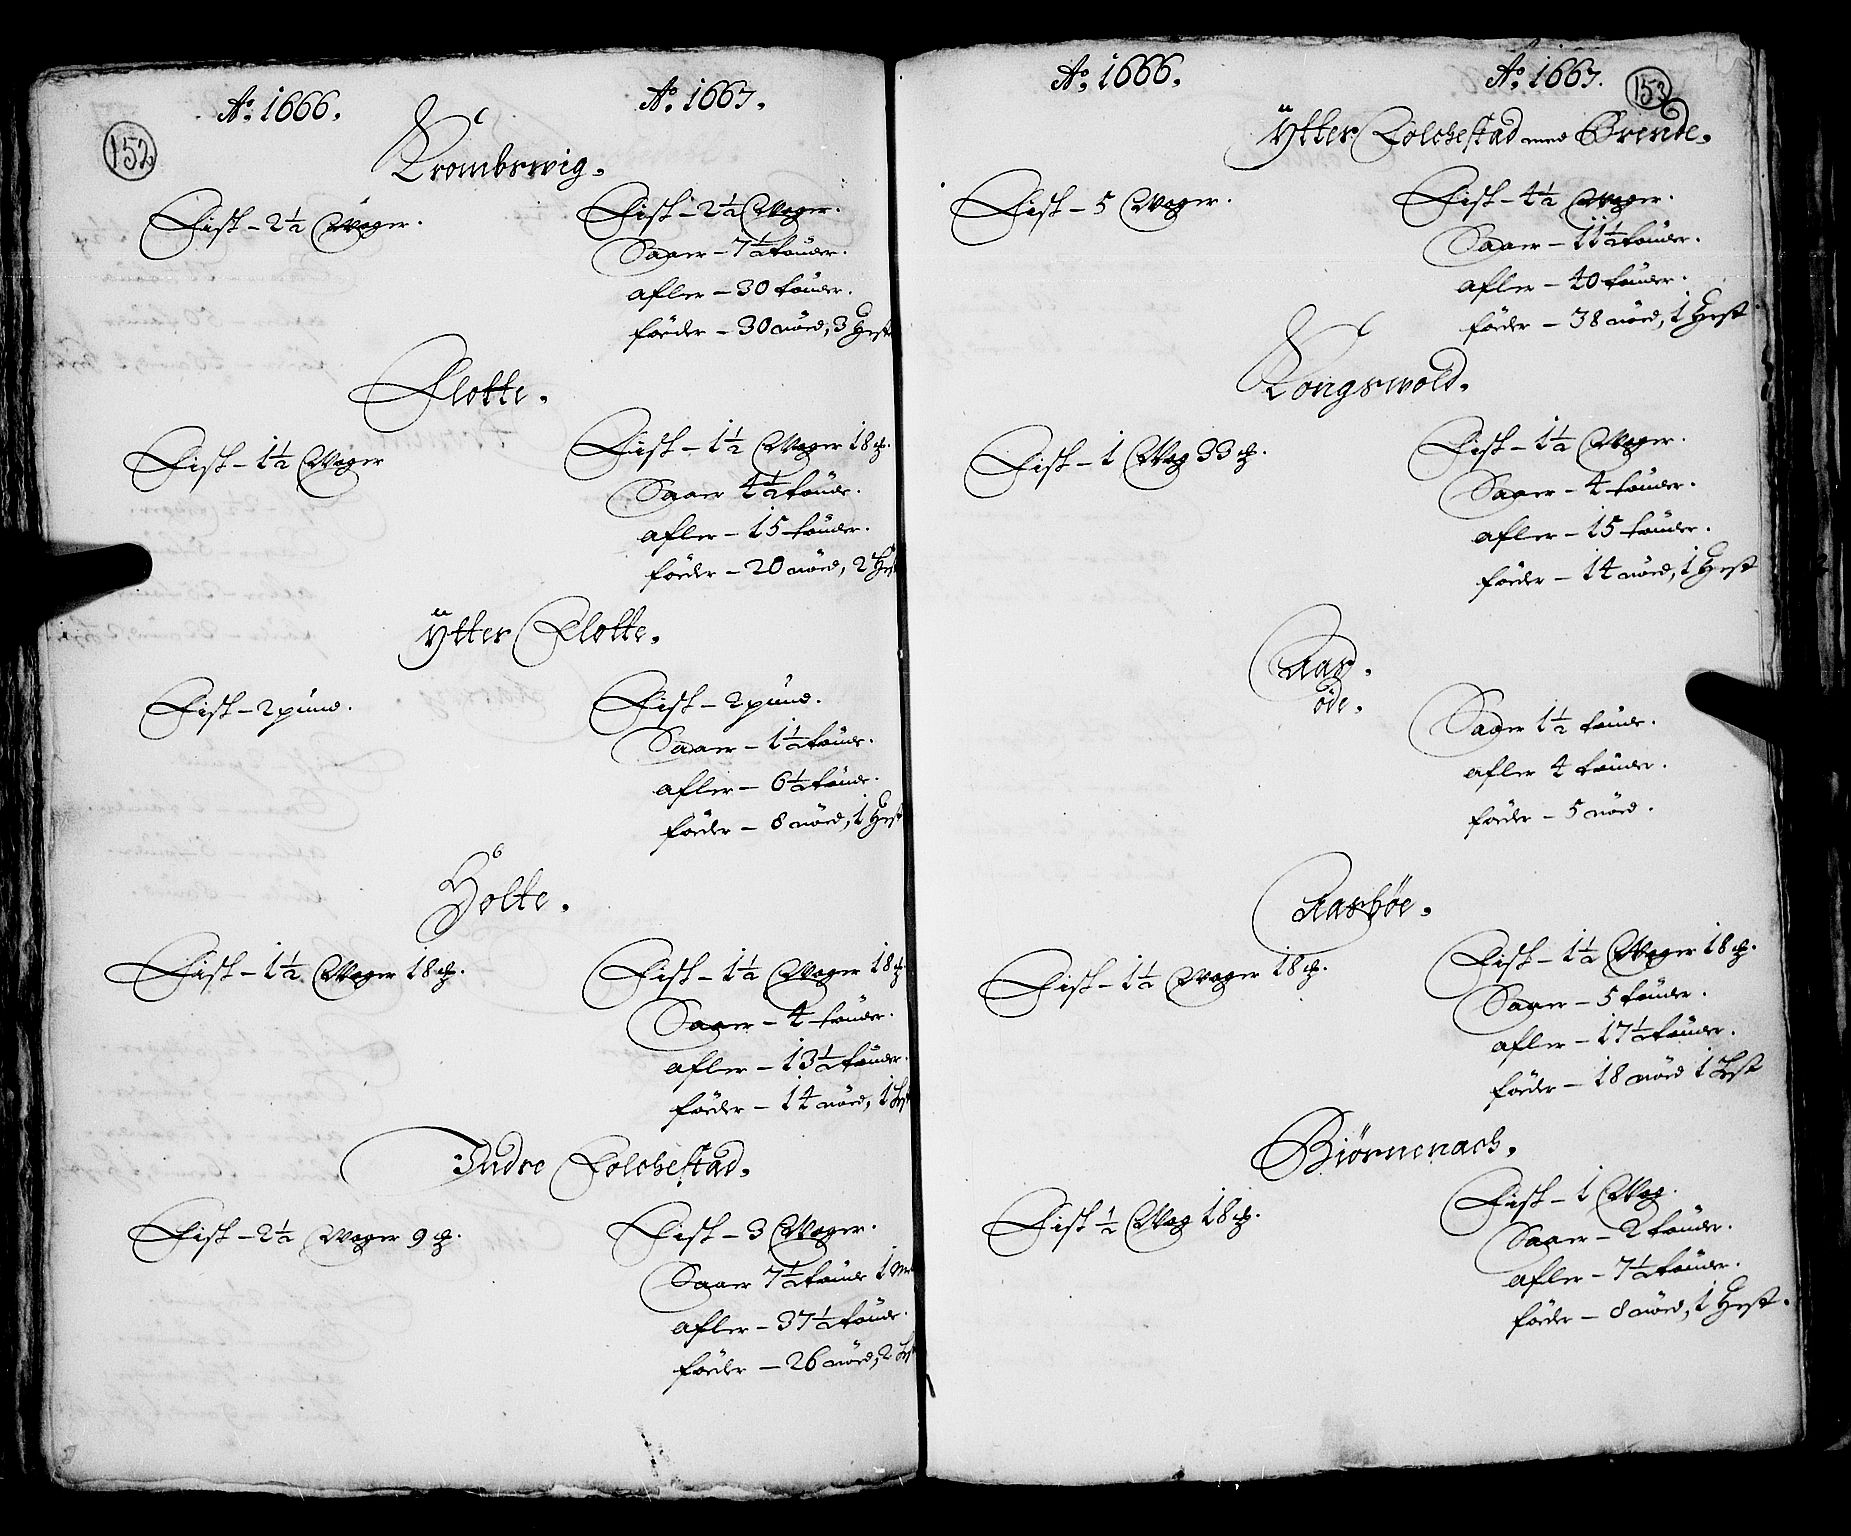 152
Ao. 1666. Ao. 1667.
Krombswig.
Fisk - 2½ Woger. Fisk - 2½ Woger.
Saaer - 7½ tönder.
afler - 30 tönder.
föeder - 30 nöed, 3 Hest
Flotte.
Fisk - 1½ Woger Fisk - 1½ Woger 18 ℔.
Saaer 4½ tönde.
afler - 15 tönder.
föeder - 20 nöed, 2 Hest
Ytter Flotte.
Fisk - 2 pund. Fisk - 2 pund.
Saaer - 1½ tönde.
afler - 6½ tönde.
föeder - 8 nöed, 1 Hest
Holte.
Fisk - 1½ Woger 18 ℔. Fisk - 1½ Woger 18 ℔.
Saaer - 4 tönder.
afler - 13½ tönder.
föeder - 14 nöed, 1 Hest
Indre Folckestad.
Fisk - 2½ Woger 9 ℔. Fisk - 3 Woger.
Saaer 7½ tönde 1
afler - 37½ tönde.
föeder - 26 nöed, 2 Hest
153
Ao. 1666. Ao. 1667.
Ytter Folckestad med Grende.
Fisk - 5 Woger. Fisk - 4½ Woger.
Saaer - 11½ tönder.
afler - 40 tönder.
föeder - 38 nöed, 1 Hest
Kongswold.
Fisk - 1 Wog 33 ℔. Fisk - 1½ Woger.
Saaer - 4 tönder.
afler - 15 tönder.
föeder - 14 nöed, 1 Hest
Aas
öde.
Saaer 1½ tönde.
afler 4 tönder.
föeder - 5 nöed.
Aasböe.
Fisk - 1½ Woger 18 ℔. Fisk - 1½ Woger 18 ℔.
Saaer - 5 tönder.
afler - 17½ tönder.
föeder - 18 nöed 1 Hest
Biörnenack.
Fisk ½ Wog 18 ℔. Fisk - 1 Wog.
Saaer - 2 tönder.
afler - 7½ tönder.
föeder - 8 nöed, 1 Hest.